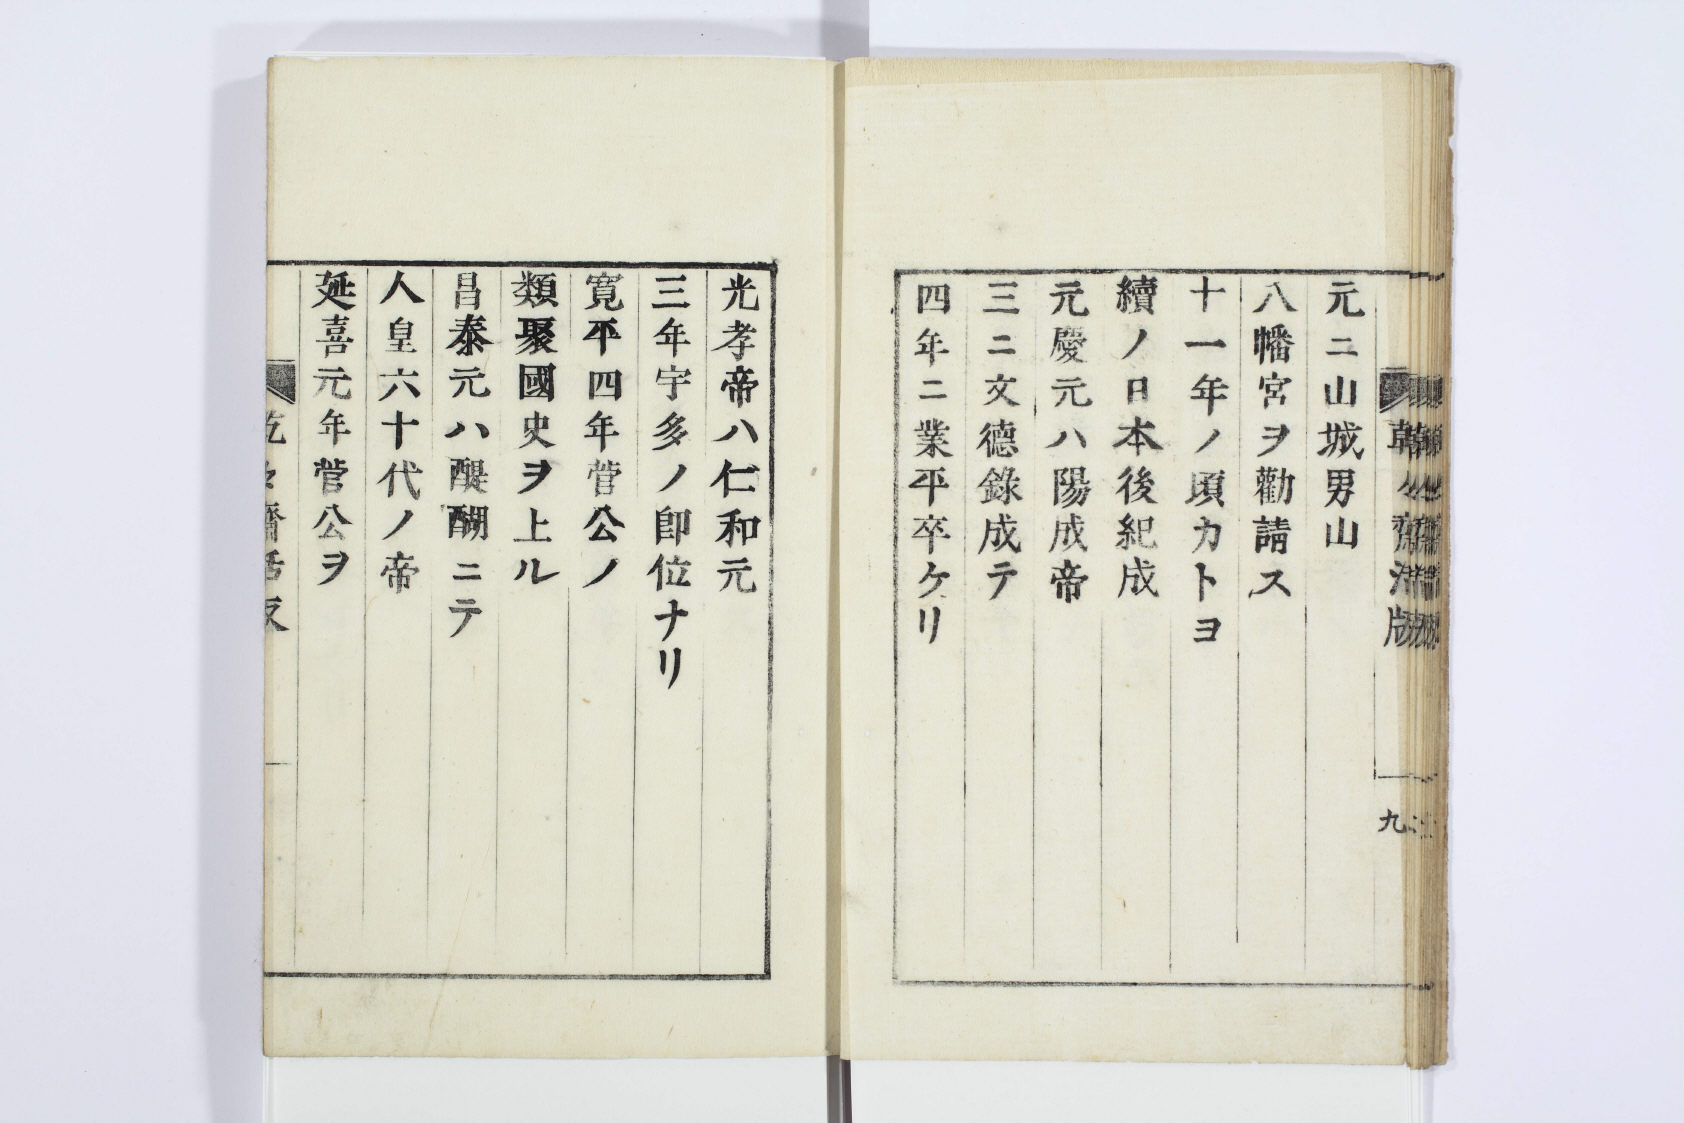 元ニ山城男山
八幡宮ヲ勸請ス
十一年ノ頃カトヨ
續ノ日本後紀成
元慶元ハ陽成帝
三ニ文德錄成テ
四年ニ業平卒ケリ
九
光孝帝ハ仁和元
三年宇多ノ卽位ナリ
寬平四年菅公ノ
類聚國史ヲ上ル
昌泰元ハ醍醐ニテ
人皇六十代ノ帝
延喜元年菅公ヲ